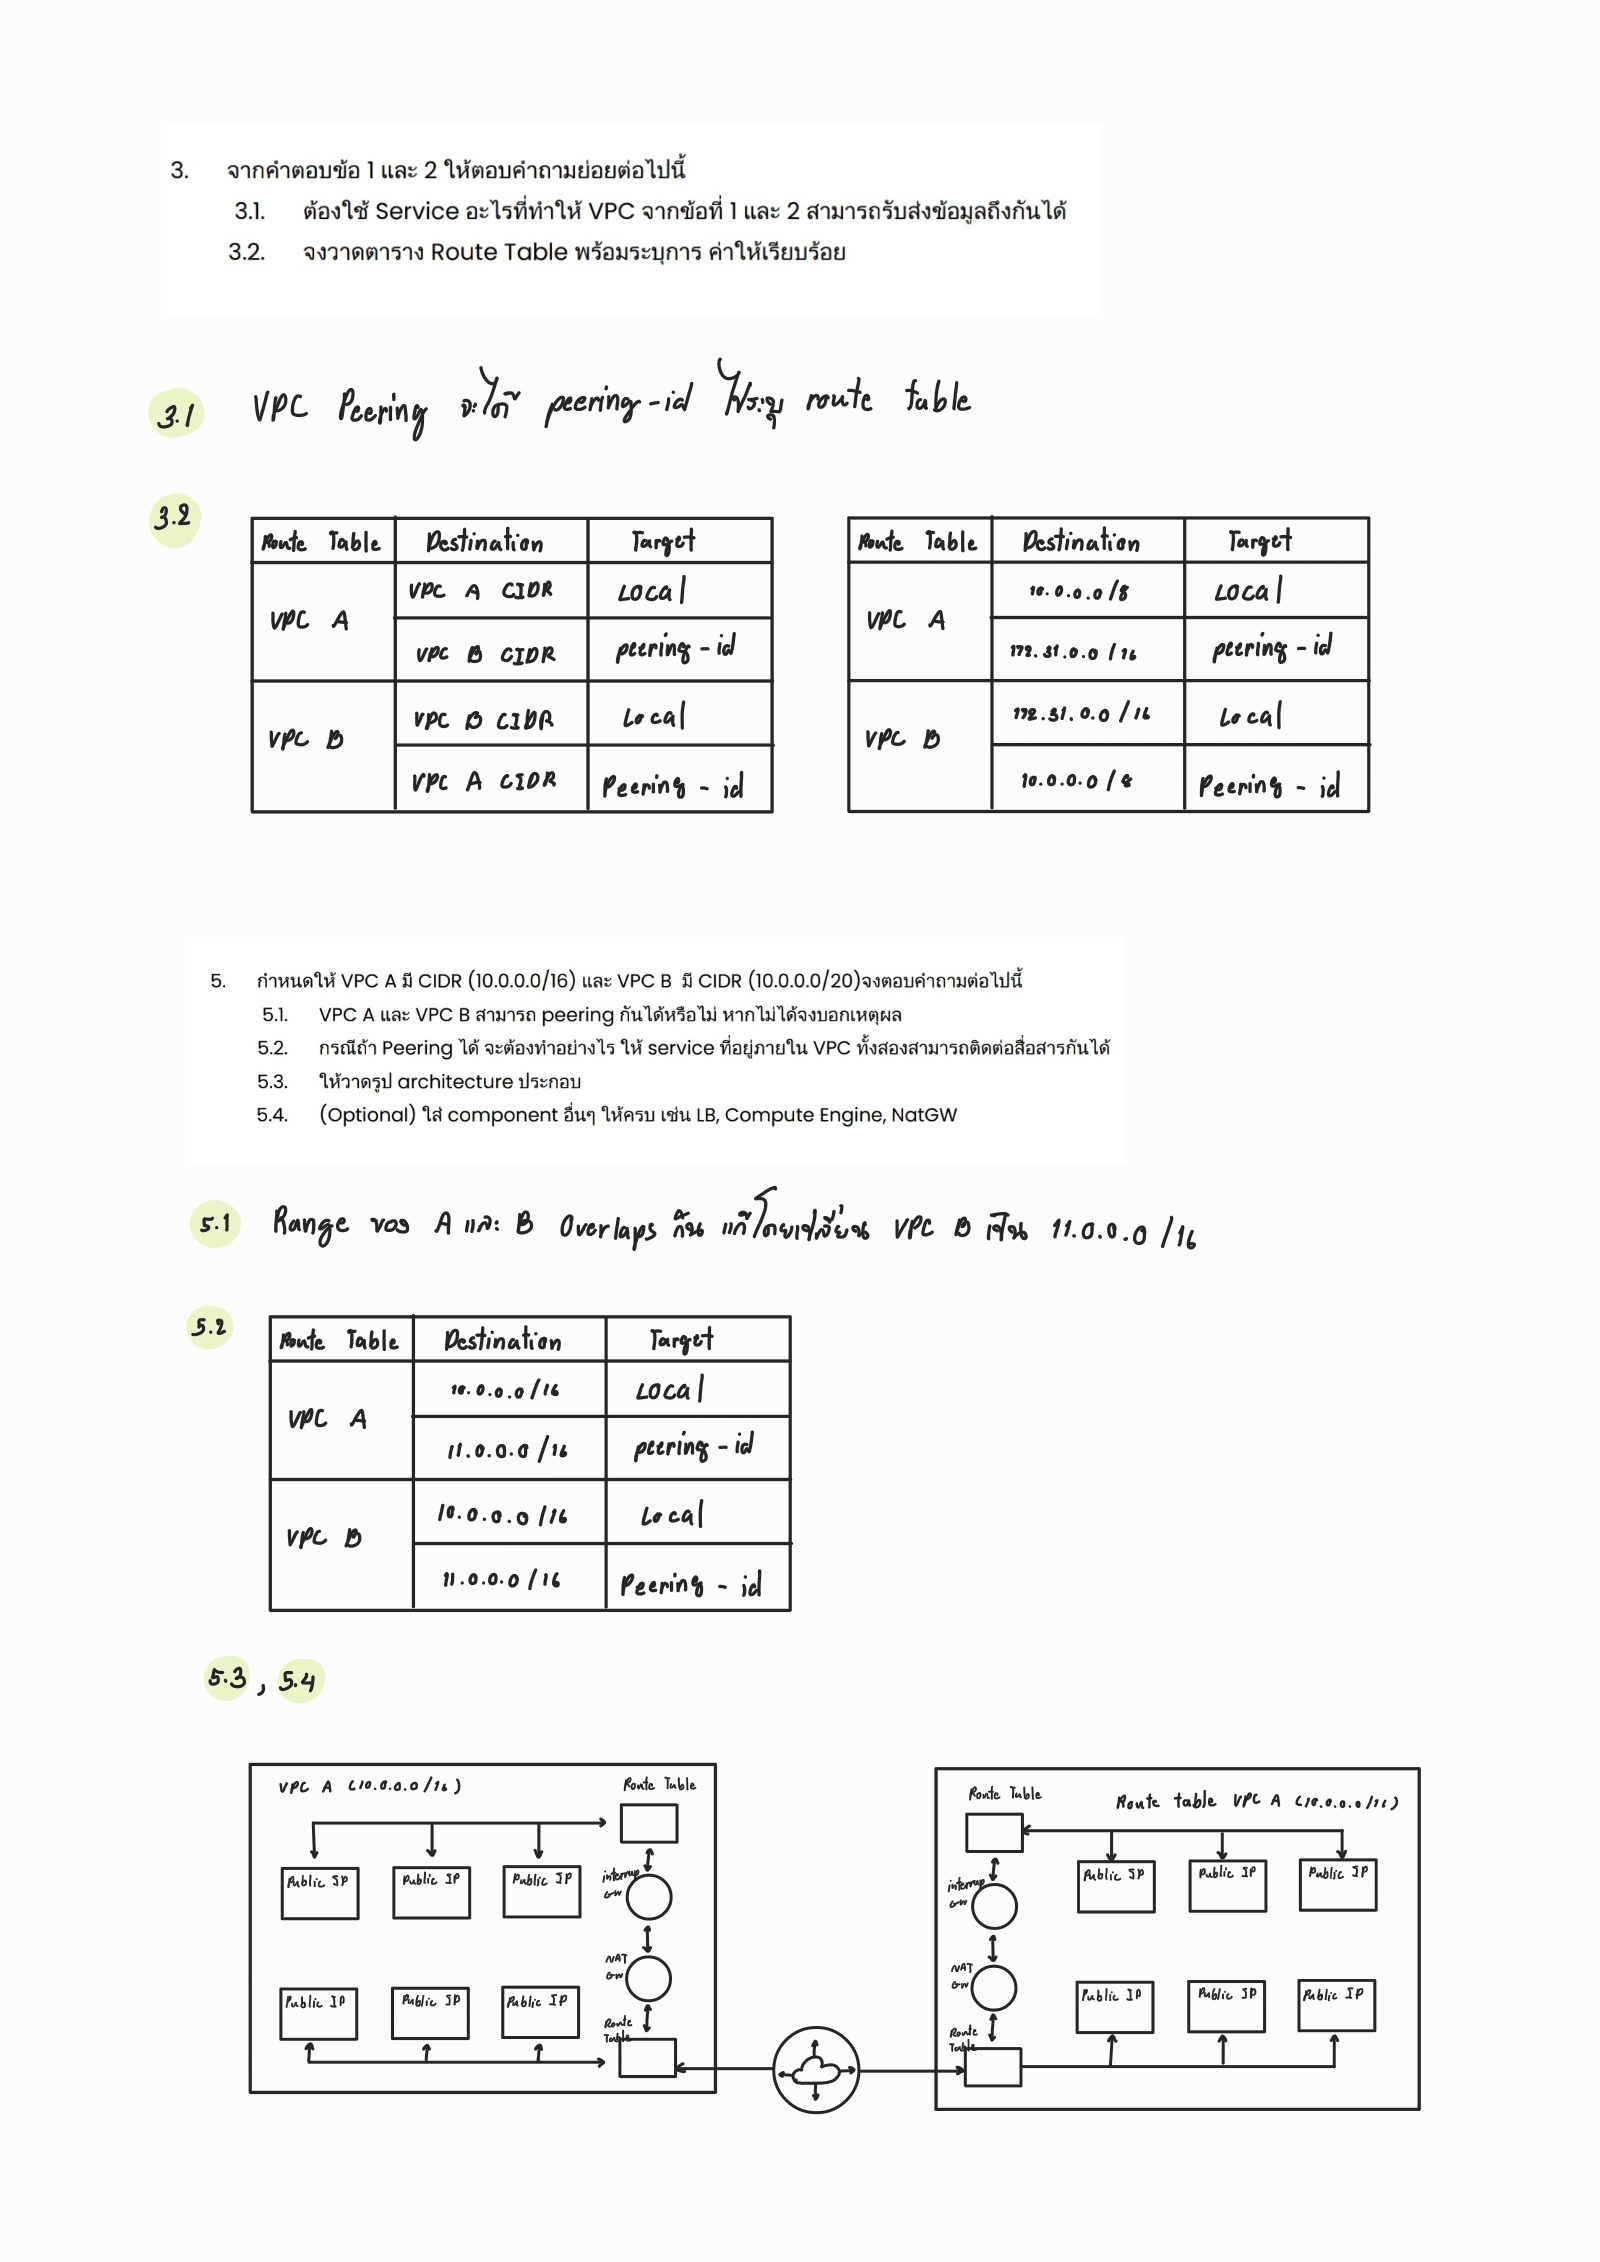 3. จากคำตอบข้อ 1 และ 2 ให้ตอบคำถามย่อยต่อไปนี้
3.1. ต้องใช้ Service อะไรที่ทำให้ VPC จากข้อที่ 1 และ 2 สามารถรับส่งข้อมูลถึงกันได้
3.2. จงวาดตาราง Route Table พร้อมระบุการ ค่าให้เรียบร้อย
3.1 VPC Peering จะได้ peering-id ไประบุ route table
3.2
Route Table Destination Target
VPC A
VPC A CIDR Local
VPC B CIDR peering-id
VPC B
VPC B CIDR Local
VPC A CIDR Peering-id
Route Table Destination Target
VPC A
10.0.0.0/8 Local
172.31.0.0/16 peering-id
VPC B
172.31.0.0/16 Local
10.0.0.0/8 Peering-id
5. กำหนดให้ VPC A มี CIDR (10.0.0.0/16) และ VPC B มี CIDR (10.0.0.0/20)จงตอบคำถามต่อไปนี้
5.1. VPC A และ VPC B สามารถ peering กันได้หรือไม่ หากไม่ได้จงบอกเหตุผล
5.2. กรณีถ้า Peering ได้ จะต้องทำอย่างไร ให้ service ที่อยู่ภายใน VPC ทั้งสองสามารถติดต่อสื่อสารกันได้
5.3. ให้วาดรูป architecture ประกอบ
5.4. (Optional) ใส่ component อื่นๆ ให้ครบ เช่น LB, Compute Engine, NatGW
5.1 Range ของ A และ B Overlaps กัน แก้โดยเปลี่ยน VPC B เป็น 11.0.0.0/16
5.2
Route Table Destination Target
VPC A
10.0.0.0/16 Local
11.0.0.0/16 peering-id
VPC B
10.0.0.0/16 Local
11.0.0.0/16 Peering-id
5.3, 5.4
VPC A (10.0.0.0/16)
Route Table
Public IP Public IP Public IP
GW
NAT
GW
Public IP Public IP Public IP
Route
Table
Route Table
Route table VPC A (10.0.0.0/16)
Public IP Public IP Public IP
GW
NAT
GW
Public IP Public IP Public IP
Route
Table